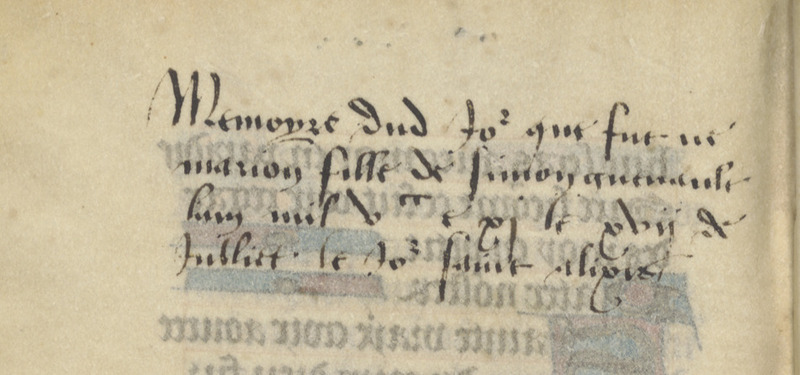 Memoyre dud Jor que fut ne
marion fille de simon guenault
lam mil v cc e xj le xvij de
Julliet le Jor saint alixis